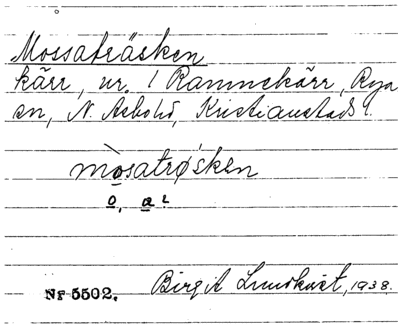 Mossaträsken
kärr, nr. 1 Ramnekärr, Rya
sn, N. Åsbohd, Kristianstads l.
mòsatrø'sken
o, a
Nr 5502. Birgit Lundkvist, 1938.